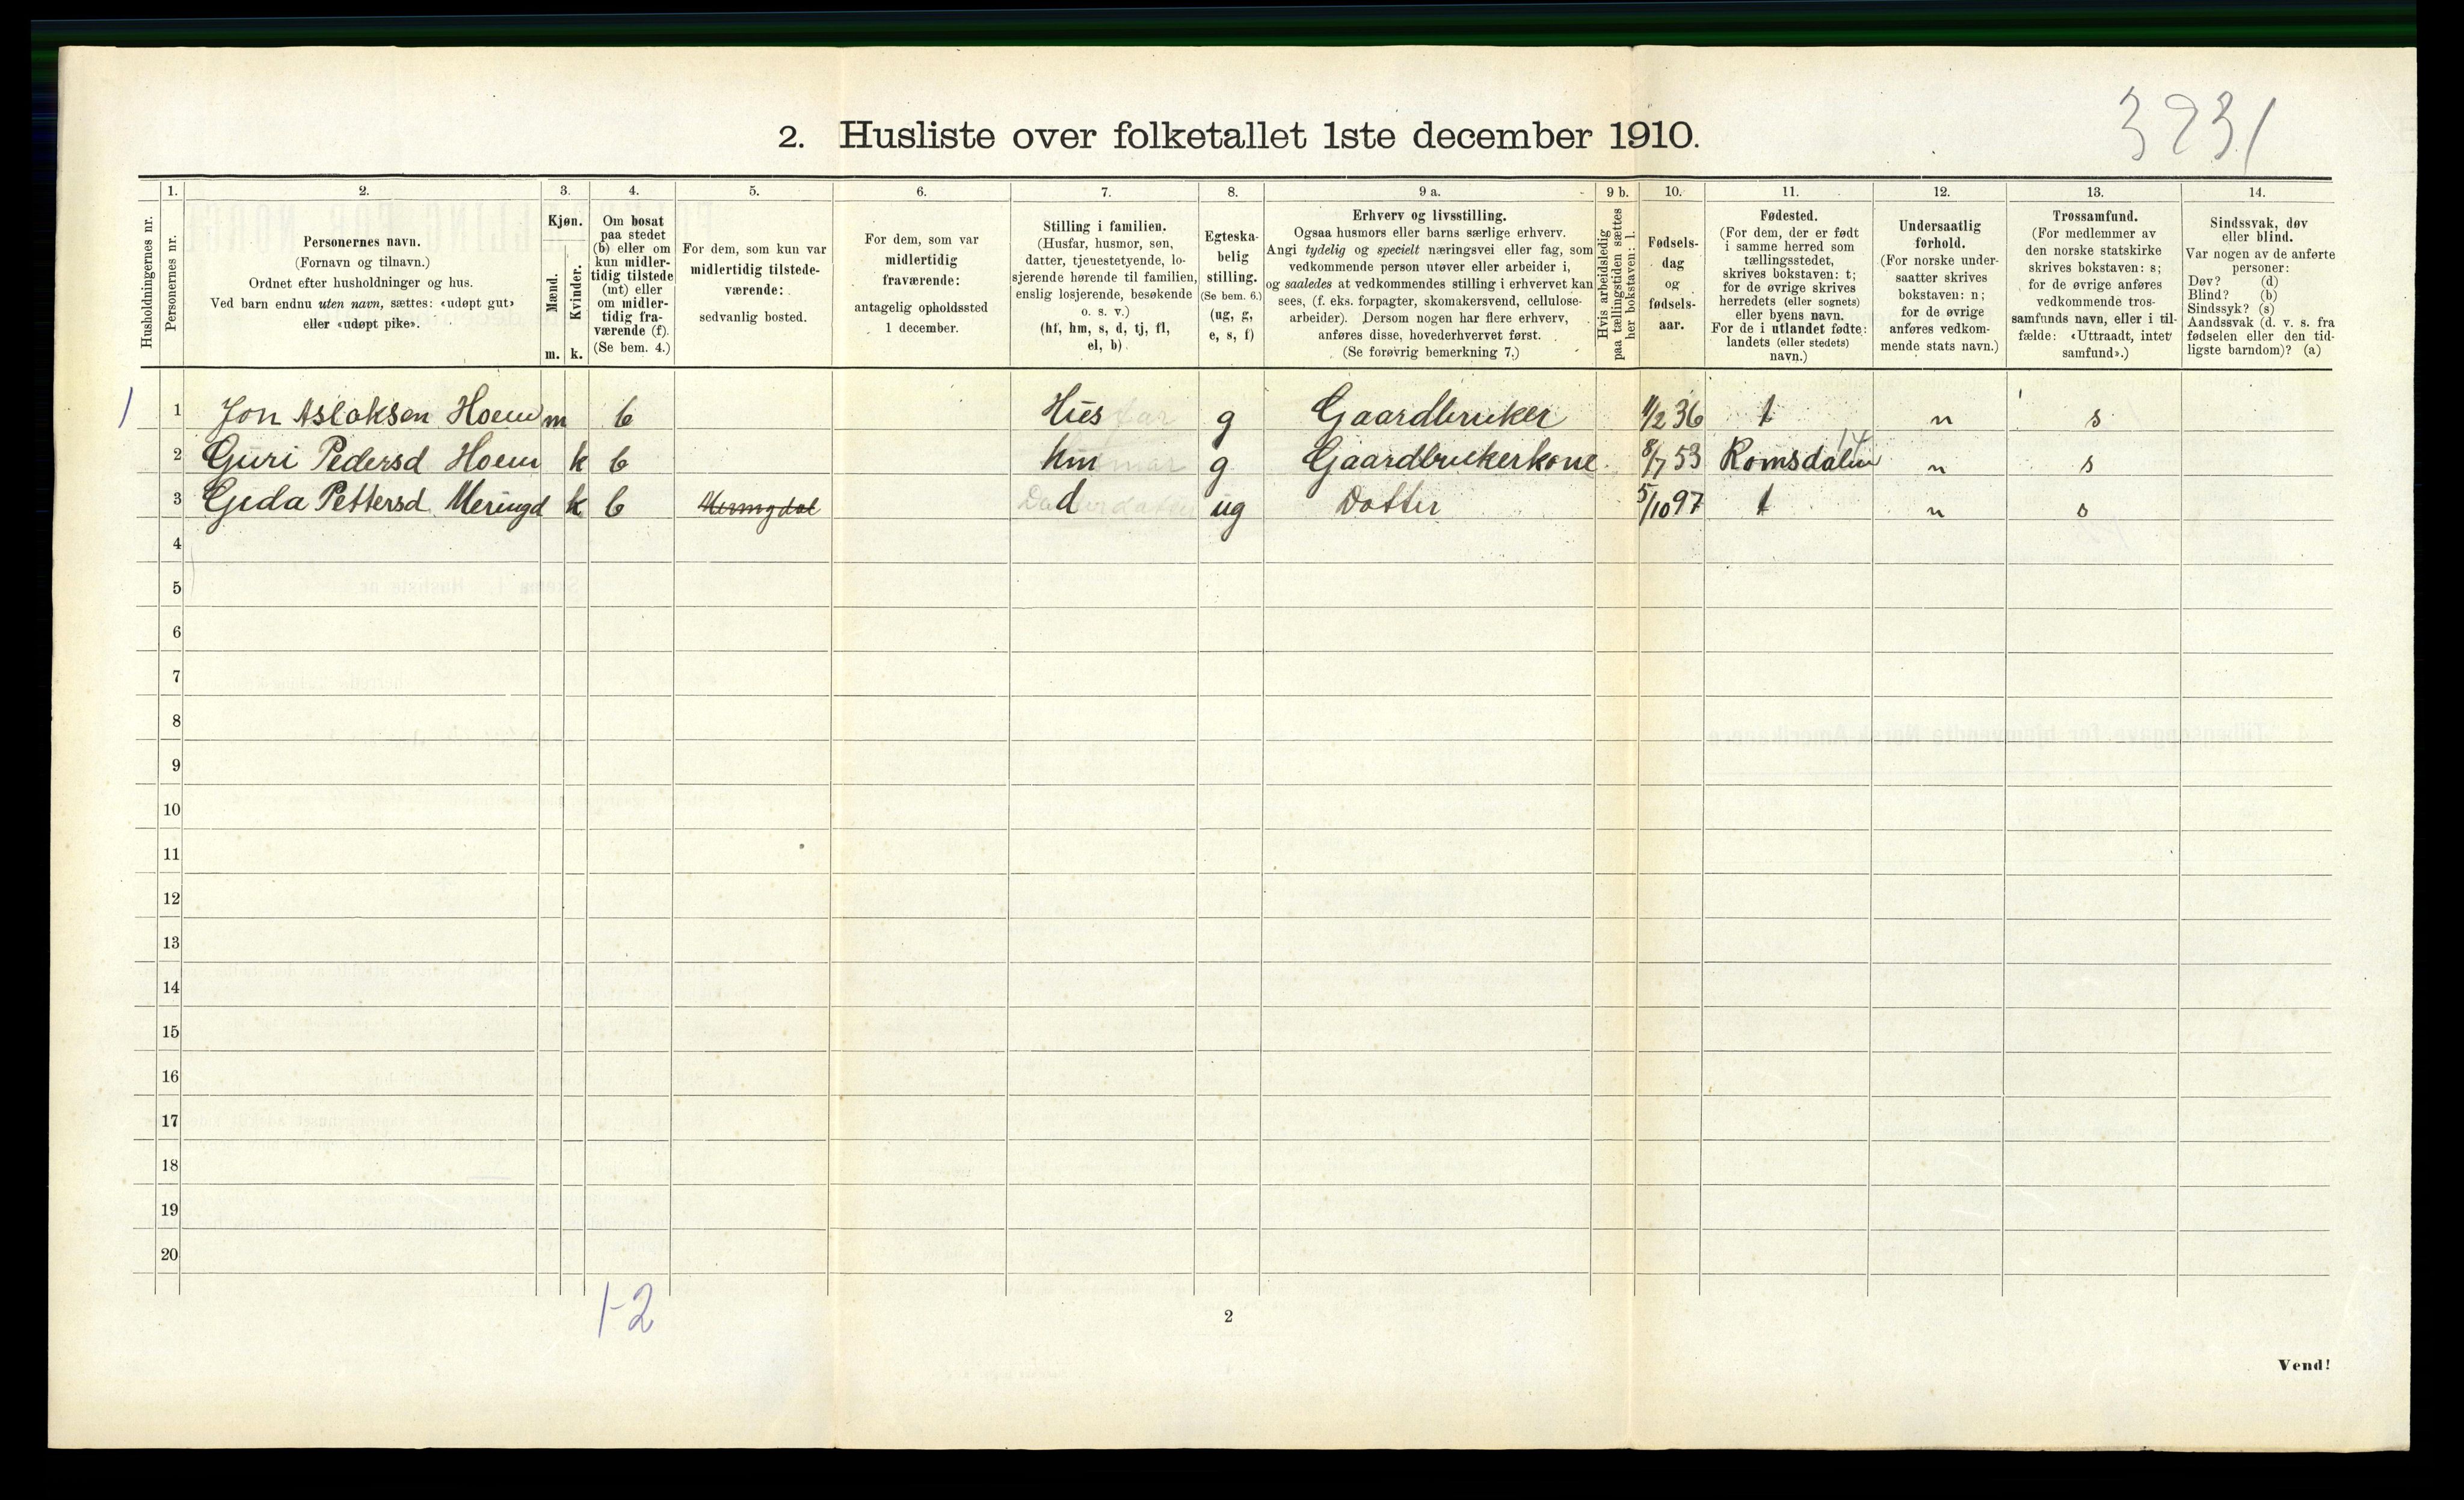 3231
2. Husliste over folketallet 1ste december 1910.
Husholdningernes nr.
1. Personernes nr.
2. Personernes navn. (Fornavn og tilnavn.) Ordnet efter husholdninger og hus. Ved barn endnu uten navn, sættes: «udøpt gut» eller «udøpt pike».
3. Kjøn. Mænd. m. Kvinder. k.
4. Om bosat paa stedet (b) eller om kun midlertidig tilstede (mt) eller om midlertidig fraværende (f). (Se bem. 4.)
5. For dem, som kun var midlertidig tilstedeværende: sedvanlig bosted.
6. For dem, som var midlertidig fraværende: antagelig opholdssted 1 december.
7. Stilling i familien. (Husfar, husmor, søn, datter, tjenestetyende, losjerende hørende til familien, enslig losjerende, besøkende o. s. v.) (hf, hm, s, d, tj, fl, el, b)
8. Egteskabelig stilling. (Se bem. 6.) (ug, g, e, s, f)
9 a. Erhverv og livsstilling. Ogsaa husmors eller barns særlige erhverv. Angi tydelig og specielt næringsvei eller fag, som vedkommende person utøver eller arbeider i, og saaledes at vedkommendes stilling i erhvervet kan sees, (f. eks. forpagter, skomakersvend, cellulosearbeider). Dersom nogen har flere erhverv, anføres disse, hovederhvervet først. (Se forøvrig bemerkning 7.)
9 b. Hvis arbeidsledig paa tællingstiden sættes her bokstaven: l.
10. Fødselsdag og fødselsaar.
11. Fødested. (For dem, der er født i samme herred som tællingsstedet, skrives bokstaven: t; for de øvrige skrives herredets (eller sognets) eller byens navn. For de i utlandet fødte: landets (eller stedets) navn.)
12. Undersaatlig forhold. (For norske undersaatter skrives bokstaven: n; for de øvrige anføres vedkommende stats navn.)
13. Trossamfund. (For medlemmer av den norske statskirke skrives bokstaven: s; for de øvrige anføres vedkommende trossamfunds navn, eller i tilfælde: «Uttraadt, intet samfund».)
14. Sindssvak, døv eller blind. Var nogen av de anførte personer: Døv? (d) Blind? (b) Sindssyk? (s) Aandssvak (d. v. s. fra fødselen eller den tidligste barndom)? (a)
1 1 Jon Aslaksen Hoem m b Hus far g Gaardbruker 11/2 36 t n s
2 Guri Pedersd Hoem k b hm g Gaardbrukerkone 8/7 53 Romsdalen n s
3 Gida Pettersd Meringd k b Meringdal d ug Dotter 5/10 97 t n s
4
5
6
7
8
9
10
11
12
13
14
15
16
17
18
19
20
1-2
2
Vend!